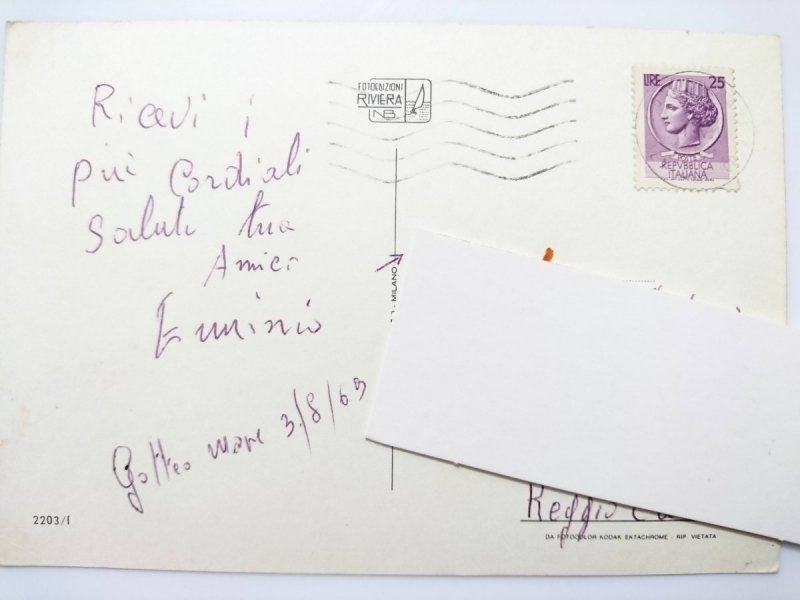 Ricevi i
più Cordiali
Saluti tua
Amici
Gatteo mare 3/8/69
2203/I
FOTOEDIZIONI
RIVIERA
NB
LIRE 25
POSTE
REPVBBLICA
ITALIANA
- MILANO
Reggio
DA FOTOCOLOR KODAK EKTACHROME - RIP. VIETATA